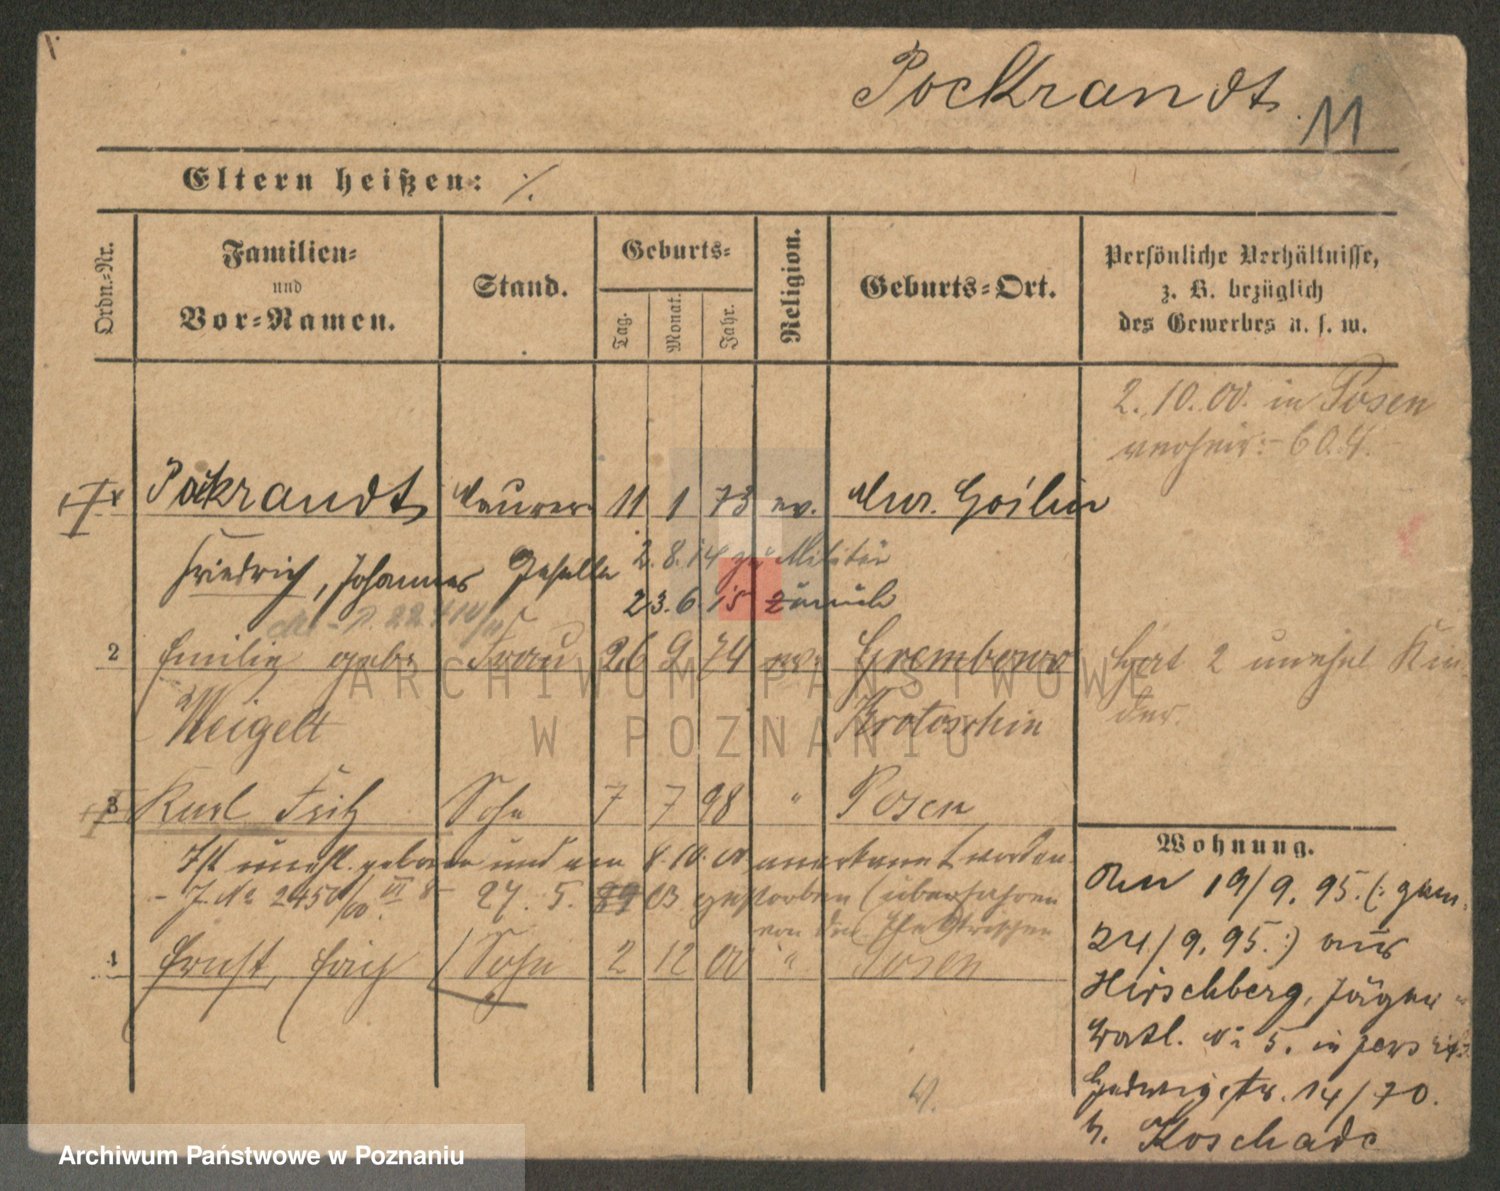 Pockrandt.
11
Eltern heißen: ./.
Ordn.-Nr.
Familien-
und
Vor-Namen.
Stand.
Geburts-
Tag.
Monat.
Jahr.
Religion.
Geburts-Ort.
Persönliche Verhältnisse,
z. B. bezüglich
des Gewerbes u. s. w.
2. 10. 00. in Posen
verheir: - 604.
Pockrandt Maurer 11 1 73 ev. Mur. Goslin
Friedrich, Johannes Geselle 2. 8. 14 zu Militär
23. 6. 15 zurück
2 Emilie geb. Frau 26 9 74 ev. Grembowo hat 2 unehel Kin
Weigelt Krotoschin der.
3 Karl Fritz Sohn 7 7 98 " Posen
Ist unehl. geboren und am 8. 10. 00 anerkannt worden
- J. No 2450/00. VI 8 - 27. 5. 03 gestorben (überfahren
von der
4 Ernst, Erich Sohn 2 12 00 " Posen
Wohnung.
Den 19/9. 95. (: gem.
24/9. 95. :) aus
Hirschberg, Jäger
Batl. No 5. in Jersitz
Hedwigstr. 14/70.
b. Koschade
ARCHIWUM PAŃSTWOWE
W POZNANIU
Archiwum Państwowe w Poznaniu